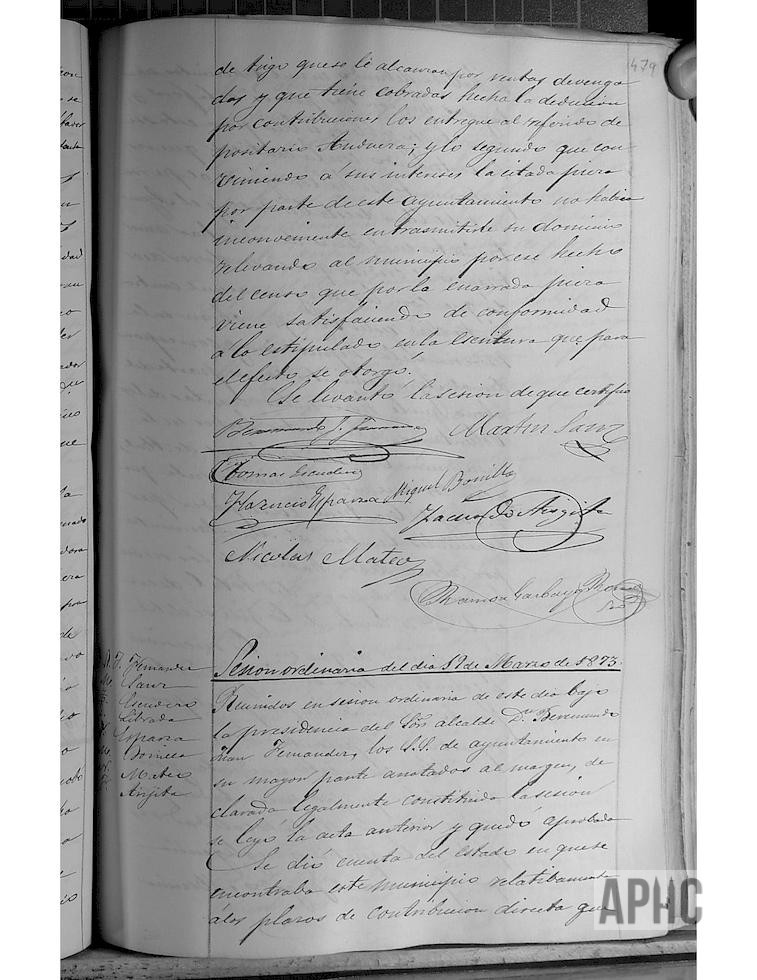 479
de trigo que se le alcanzan por rentas devenga
das y que tiene cobradas hecha la deducion
por contribuciones los entregue al referido de
positario Anduera; y lo segundo que con
viniendo a sus intereses la citada pieza
por parte de este ayuntamiento no habia
inconveniente en trasmitirle su dominio
relevando al municipio por ese hecho
del censo que por la enarrada pieza
viene satisfaciendo de conformidad
á lo estipulado en la escritura que para
el efecto se otorgó.
Se levantó la sesion de que certifico
Beremundo J. Fernandez Martin Sanz
Tomas Escudero
Florencio Esparza Miguel Bonilla
Facundo Argita
Nicolas Mateo
Ramon Garbayo
Sesion ordinaria del dia 12 de Marzo de 1873.
J. Fernandez
Sanz
Escudero
Librada
Esparza
Bonilla
Mateo
Argita
Reunidos en sesion ordinaria de este dia bajo
la presidencia del Sor. alcalde Dn. Beremundo
Juan Fernandez, los S.S. de ayuntamiento en
su mayor parte anotados al margen, de
clarada legalmente constituida la sesion
se leyó la acta anterior y quedó aprobada
Se dió cuenta del estado en que se
encontraba este municipio relatibamente
á los plazos de contribucion directa que
APHC